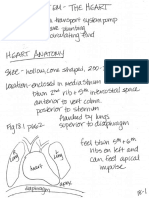 EM - THE HEART
transport system pump
ve plumbing
circulating fluid
HEART ANATOMY
Size - hollow, cone shaped, 250-
Location - enclosed in mediastinum
btwn 2nd rib + 5th intercostal space
anterior to vert colmn
posterior to sternum
flanked by lungs
superior to diaphragm
Fig 18.1 p662
feel btwn 5th + 6th
ribs on left and
can feel apical
impulse.
lung
heart
lung
apex
diaphragm
18-1